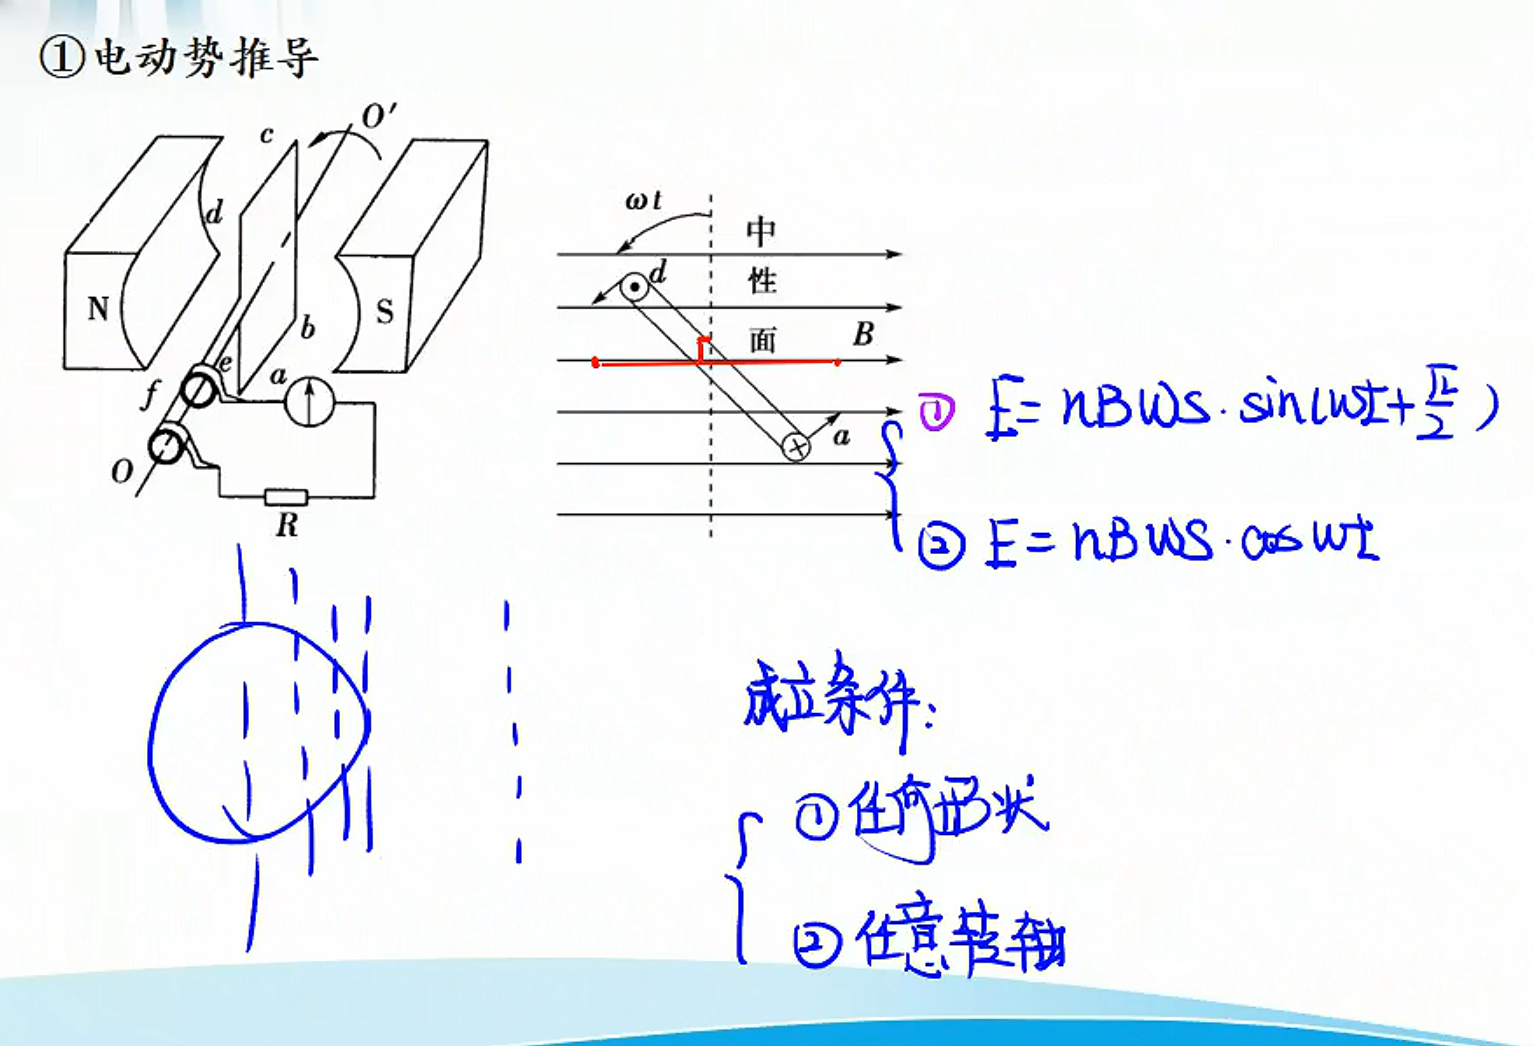 ①电动势推导
O'
c
d
N
S
b
e
a
f
O
R
ωt
中
d
性
面
B
a
① E=nBωS·sin(ωt+π/2)
② E=nBωS·cosωt
成立条件:
①任何形状
②任意转轴